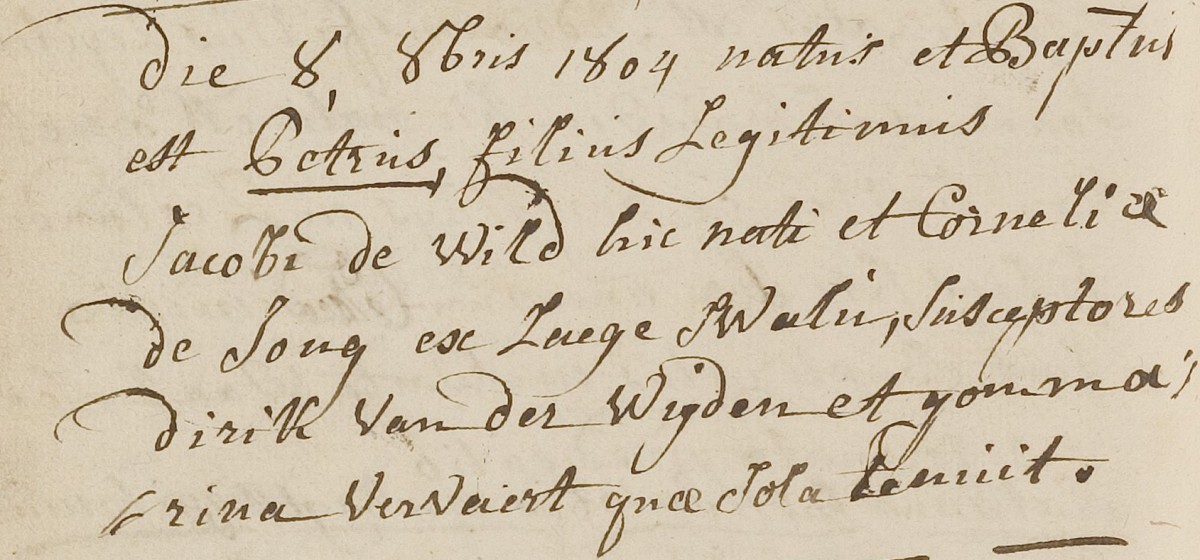 Die 8, 8bris 1804 natus et Baptus
est Petrus, filius Legitimus
Jacobi de Wild hic nati et Corneliæ
de Jong ex Laege Swalu, Susceptores
dirik Van der Wijden et gomma,
rina VerVaert quæ Sola tenuit.